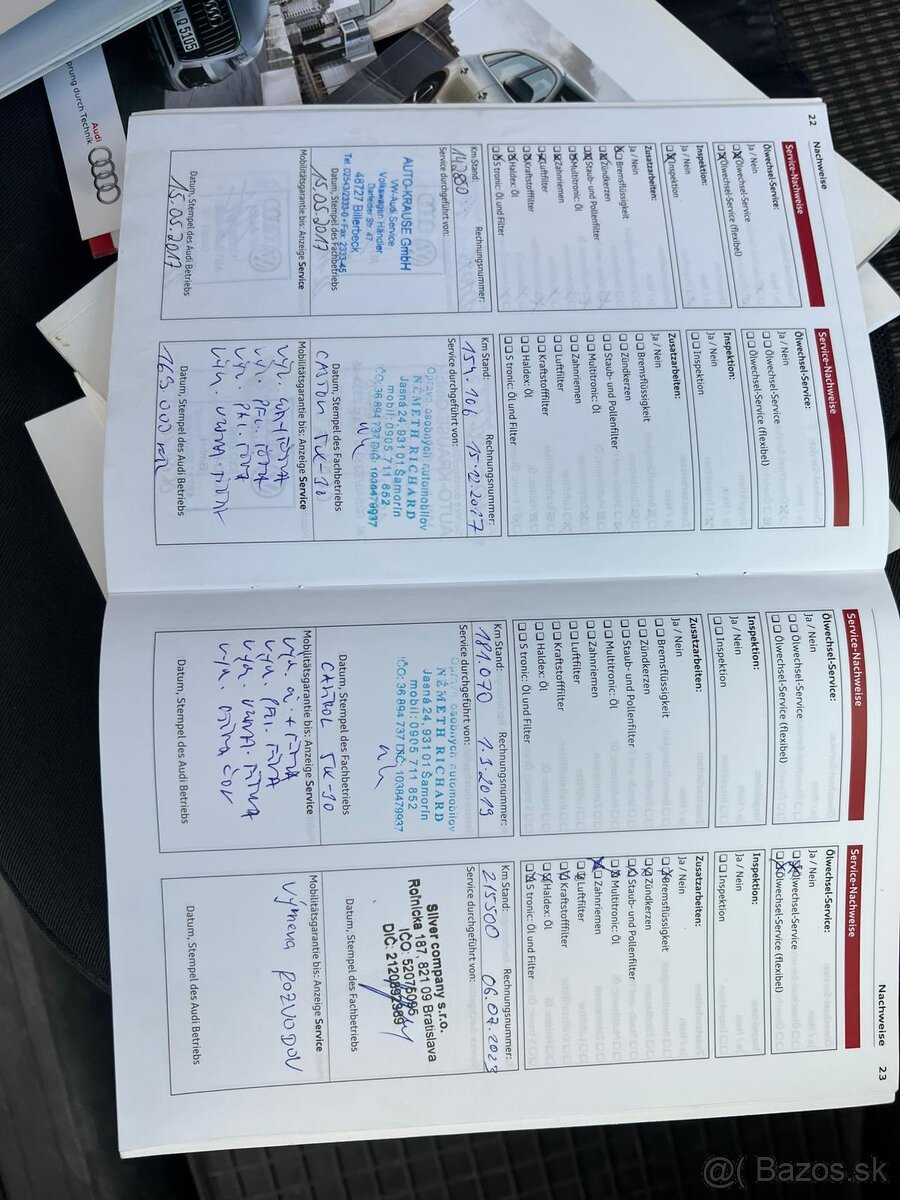 Nachweise
22
Service-Nachweise
Ölwechsel-Service:
Ja / Nein
Ölwechsel-Service
Ölwechsel-Service (flexibel)
Inspektion:
Ja / Nein
Inspektion
Zusatzarbeiten:
Ja / Nein
Bremsflüssigkeit
Zündkerzen
Staub- und Pollenfilter
Multitronic: Öl
Zahnriemen
Luftfilter
Kraftstofffilter
Haldex: Öl
S tronic: Öl und Filter
Km Stand: Rechnungsnummer:
Service durchgeführt von:
AUTO-KRAUSE GmbH
VW-Audi Service
Volkswagen Händler
48727 Billerbeck
15.05.2017
Datum, Stempel des Fachbetriebs
Mobilitätsgarantie bis: Anzeige Service
15.05.2017
Datum, Stempel des Audi Betriebs
Service-Nachweise
Ölwechsel-Service:
Ja / Nein
Ölwechsel-Service
Ölwechsel-Service (flexibel)
Inspektion:
Ja / Nein
Inspektion
Zusatzarbeiten:
Ja / Nein
Bremsflüssigkeit
Zündkerzen
Staub- und Pollenfilter
Multitronic: Öl
Zahnriemen
Luftfilter
Kraftstofffilter
Haldex: Öl
S tronic: Öl und Filter
Km Stand: Rechnungsnummer:
154.106 15-12-2017
Service durchgeführt von:
Oprava osobných automobilov
NÉMETH RICHARD
Jasná 24, 931 01 Šamorín
mobil: 0905 711 852
IČO: 36 894 737 DIČ: 1038479937
Datum, Stempel des Fachbetriebs
Mobilitätsgarantie bis: Anzeige Service
163.000
Datum, Stempel des Audi Betriebs
Service-Nachweise
Ölwechsel-Service:
Ja / Nein
Ölwechsel-Service
Ölwechsel-Service (flexibel)
Inspektion:
Ja / Nein
Inspektion
Zusatzarbeiten:
Ja / Nein
Bremsflüssigkeit
Zündkerzen
Staub- und Pollenfilter
Multitronic: Öl
Zahnriemen
Luftfilter
Kraftstofffilter
Haldex: Öl
S tronic: Öl und Filter
Km Stand: Rechnungsnummer:
181.070 1-3-2019
Service durchgeführt von:
Oprava osobných automobilov
NÉMETH RICHARD
Jasná 24, 931 01 Šamorín
mobil: 0905 711 852
IČO: 36 894 737 DIČ: 1038479937
Datum, Stempel des Fachbetriebs
Mobilitätsgarantie bis: Anzeige Service
Datum, Stempel des Audi Betriebs
Nachweise
23
Service-Nachweise
Ölwechsel-Service:
Ja / Nein
Ölwechsel-Service
Ölwechsel-Service (flexibel)
Inspektion:
Ja / Nein
Inspektion
Zusatzarbeiten:
Ja / Nein
Bremsflüssigkeit
Zündkerzen
Staub- und Pollenfilter
Multitronic: Öl
Zahnriemen
Luftfilter
Kraftstofffilter
Haldex: Öl
S tronic: Öl und Filter
Km Stand: Rechnungsnummer:
215500 06.07.2023
Service durchgeführt von:
Silver company s.r.o.
Roľnícka 187, 821 09 Bratislava
IČO: 52075095
Datum, Stempel des Fachbetriebs
Mobilitätsgarantie bis: Anzeige Service
VÝMENA ROZVODOV
Datum, Stempel des Audi Betriebs
Audi
durch Technik
Bazos.sk